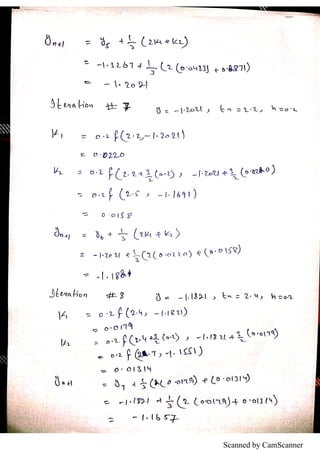 yn+1 = y5 + 1/3 (2K1 + K2)
= -1.3267 + 1/3 (2 (0.0433) + 0.2871)
= -1.2021
Iteration # 7 y = -1.2021, tn = 2.2, h = 0.2
K1 = 0.2 f(2.2, -1.2021)
= 0.0220
K2 = 0.2 f(2.2 + 3/2 (0.2), -1.2021 + 3/2 (0.0220)
= 0.2 f(2.5, -1.1691)
= 0.0158
yn+1 = y6 + 1/3 (2K1 + K2)
= -1.2021 + 1/3 (2(0.0220) + (0.0158)
= -1.1821
Iteration # 8 y = -1.1821, tn = 2.4, h = 0.2
K1 = 0.2 f(2.4, -1.1821)
= 0.0179
K2 = 0.2 f(2.4 + 3/2 (0.2), -1.1821 + 3/2 (0.0179)
= 0.2 f(2.7, -1.1551)
= 0.01314
yn+1 = y7 + 1/3 (2(0.0179) + (0.01314)
= -1.1821 + 1/3 (2 (0.0179) + 0.01314)
= -1.1657
Scanned by CamScanner